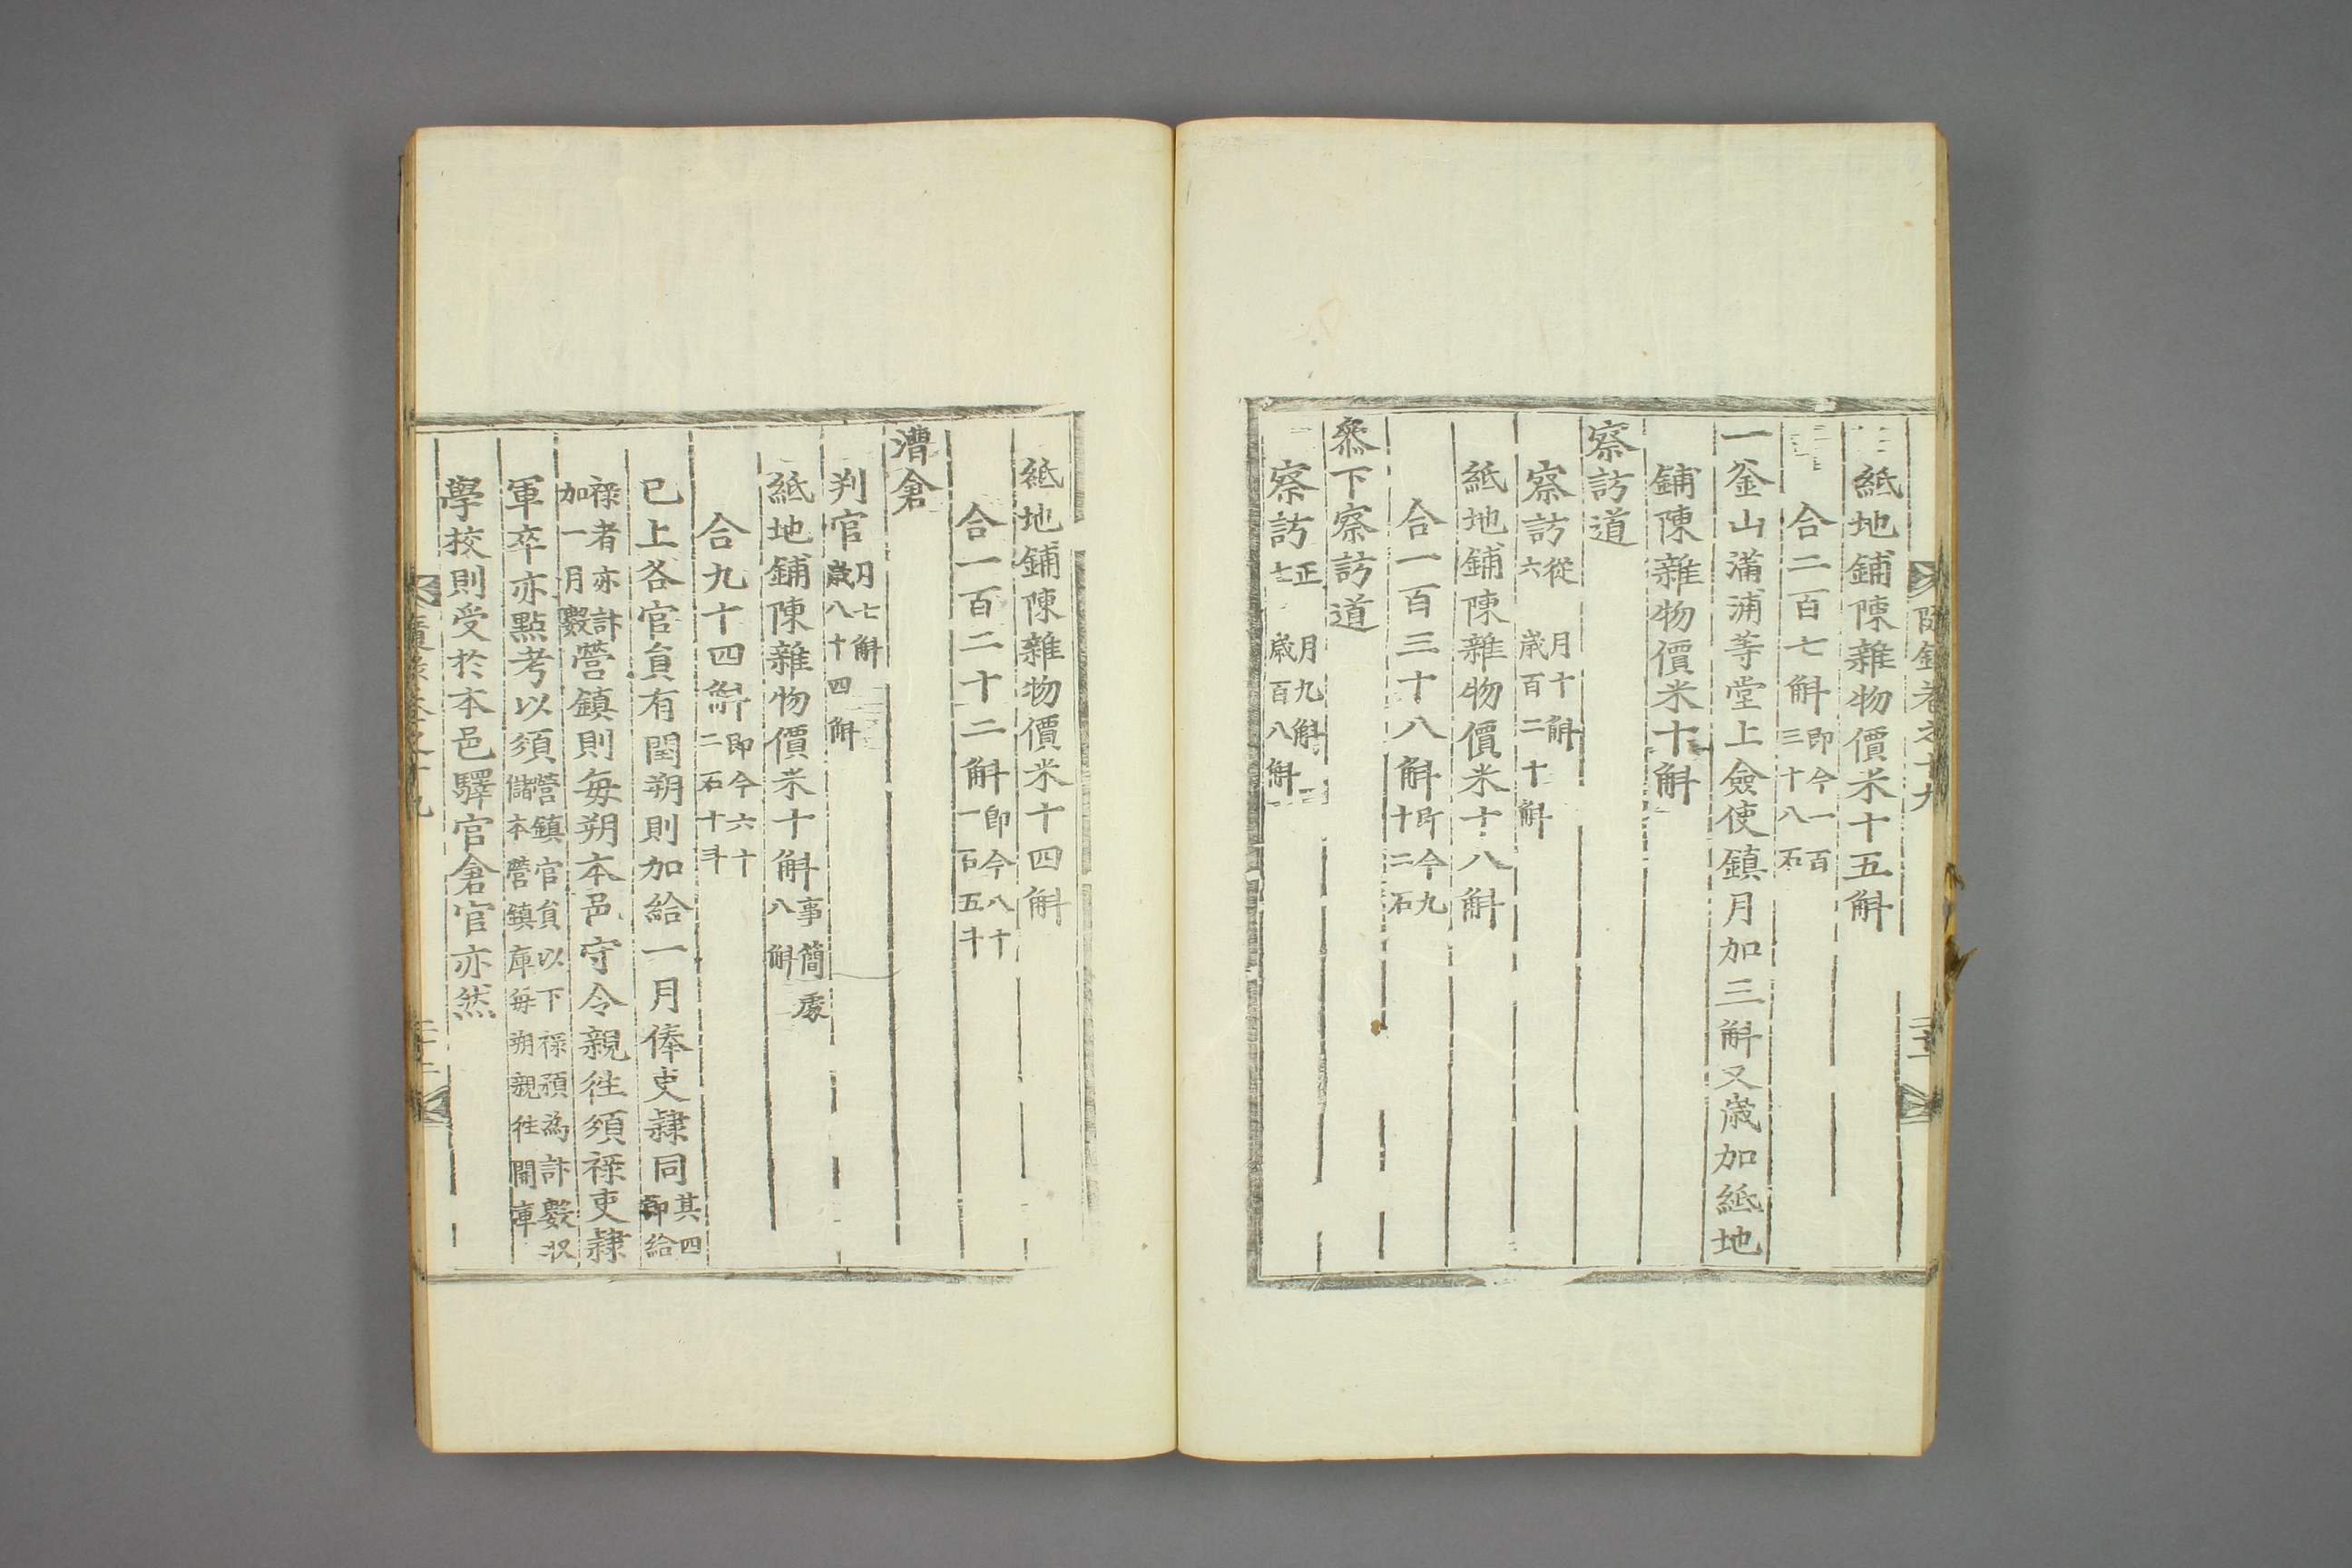 隨錄卷之十九
二十一
紙地鋪陳雜物價米十五斛
合二百七斛即今一百三十八石
一釜山滿浦等堂上僉使鎮月加三斛又歲加紙地
鋪陳雜物價米十斛
察訪道
察訪從六 月十斛歲百二十斛
紙地鋪陳雜物價米十八斛
合一百三十八斛即今九十二石
叅下察訪道
察訪正七 月九斛歲百八斛
紙地鋪陳雜物價米十四斛
合一百二十二斛即今八十一石五斗
漕倉
判官月七斛歲八十四斛
紙地鋪陳雜物價米十斛事簡處八斛
合九十四斛即今六十二石十斗
已上各官負有閏朔則加給一月俸吏隷同其四節給
祿者亦計加一月數營鎮則每朔本邑守令親徃須祿吏隷
軍卒亦點考以須營鎮官負以下祿預為計數收儲本營鎮庫每朔親徃開庫
學校則受於本邑驛官倉官亦然